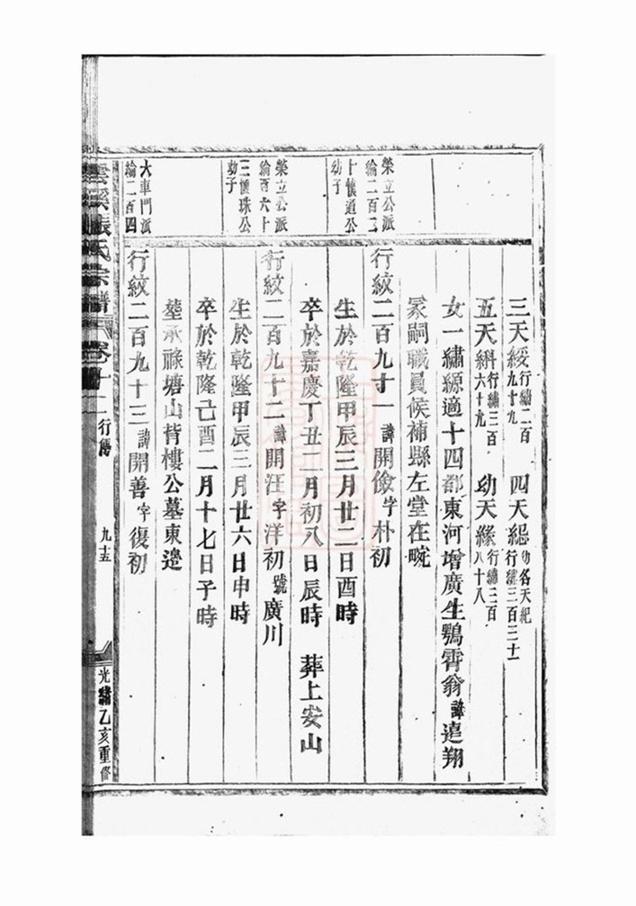 三天綏行繡二百九十九　四天緦幼名天紀行繡三百三十一
五天紏行繡三百六十九　幼天緣行繡三百八十八
女一繡緣適十四都東河增廣生鶚霄翁諱遠翔
冢嗣職員候補縣左堂在畹
榮立公派綸二百二十懷通公幼子
行紋二百九十一諱開儉字朴初
生於乾隆甲辰三月廿二日酉時
卒於嘉慶丁丑二月初八日辰時　葬上安山
榮立公派綸百六十三懷珠公幼子
行紋二百九十二諱開汪字洋初號廣川
生於乾隆甲辰三月廿六日申時
卒於乾隆己酉二月十七日子時
塋承祿塘山背樓公墓東邊
大車門派綸二百四
行紋二百九十三諱開善字復初
雲溪張氏宗譜　卷十二　行傳　九十五　光緒乙亥重修